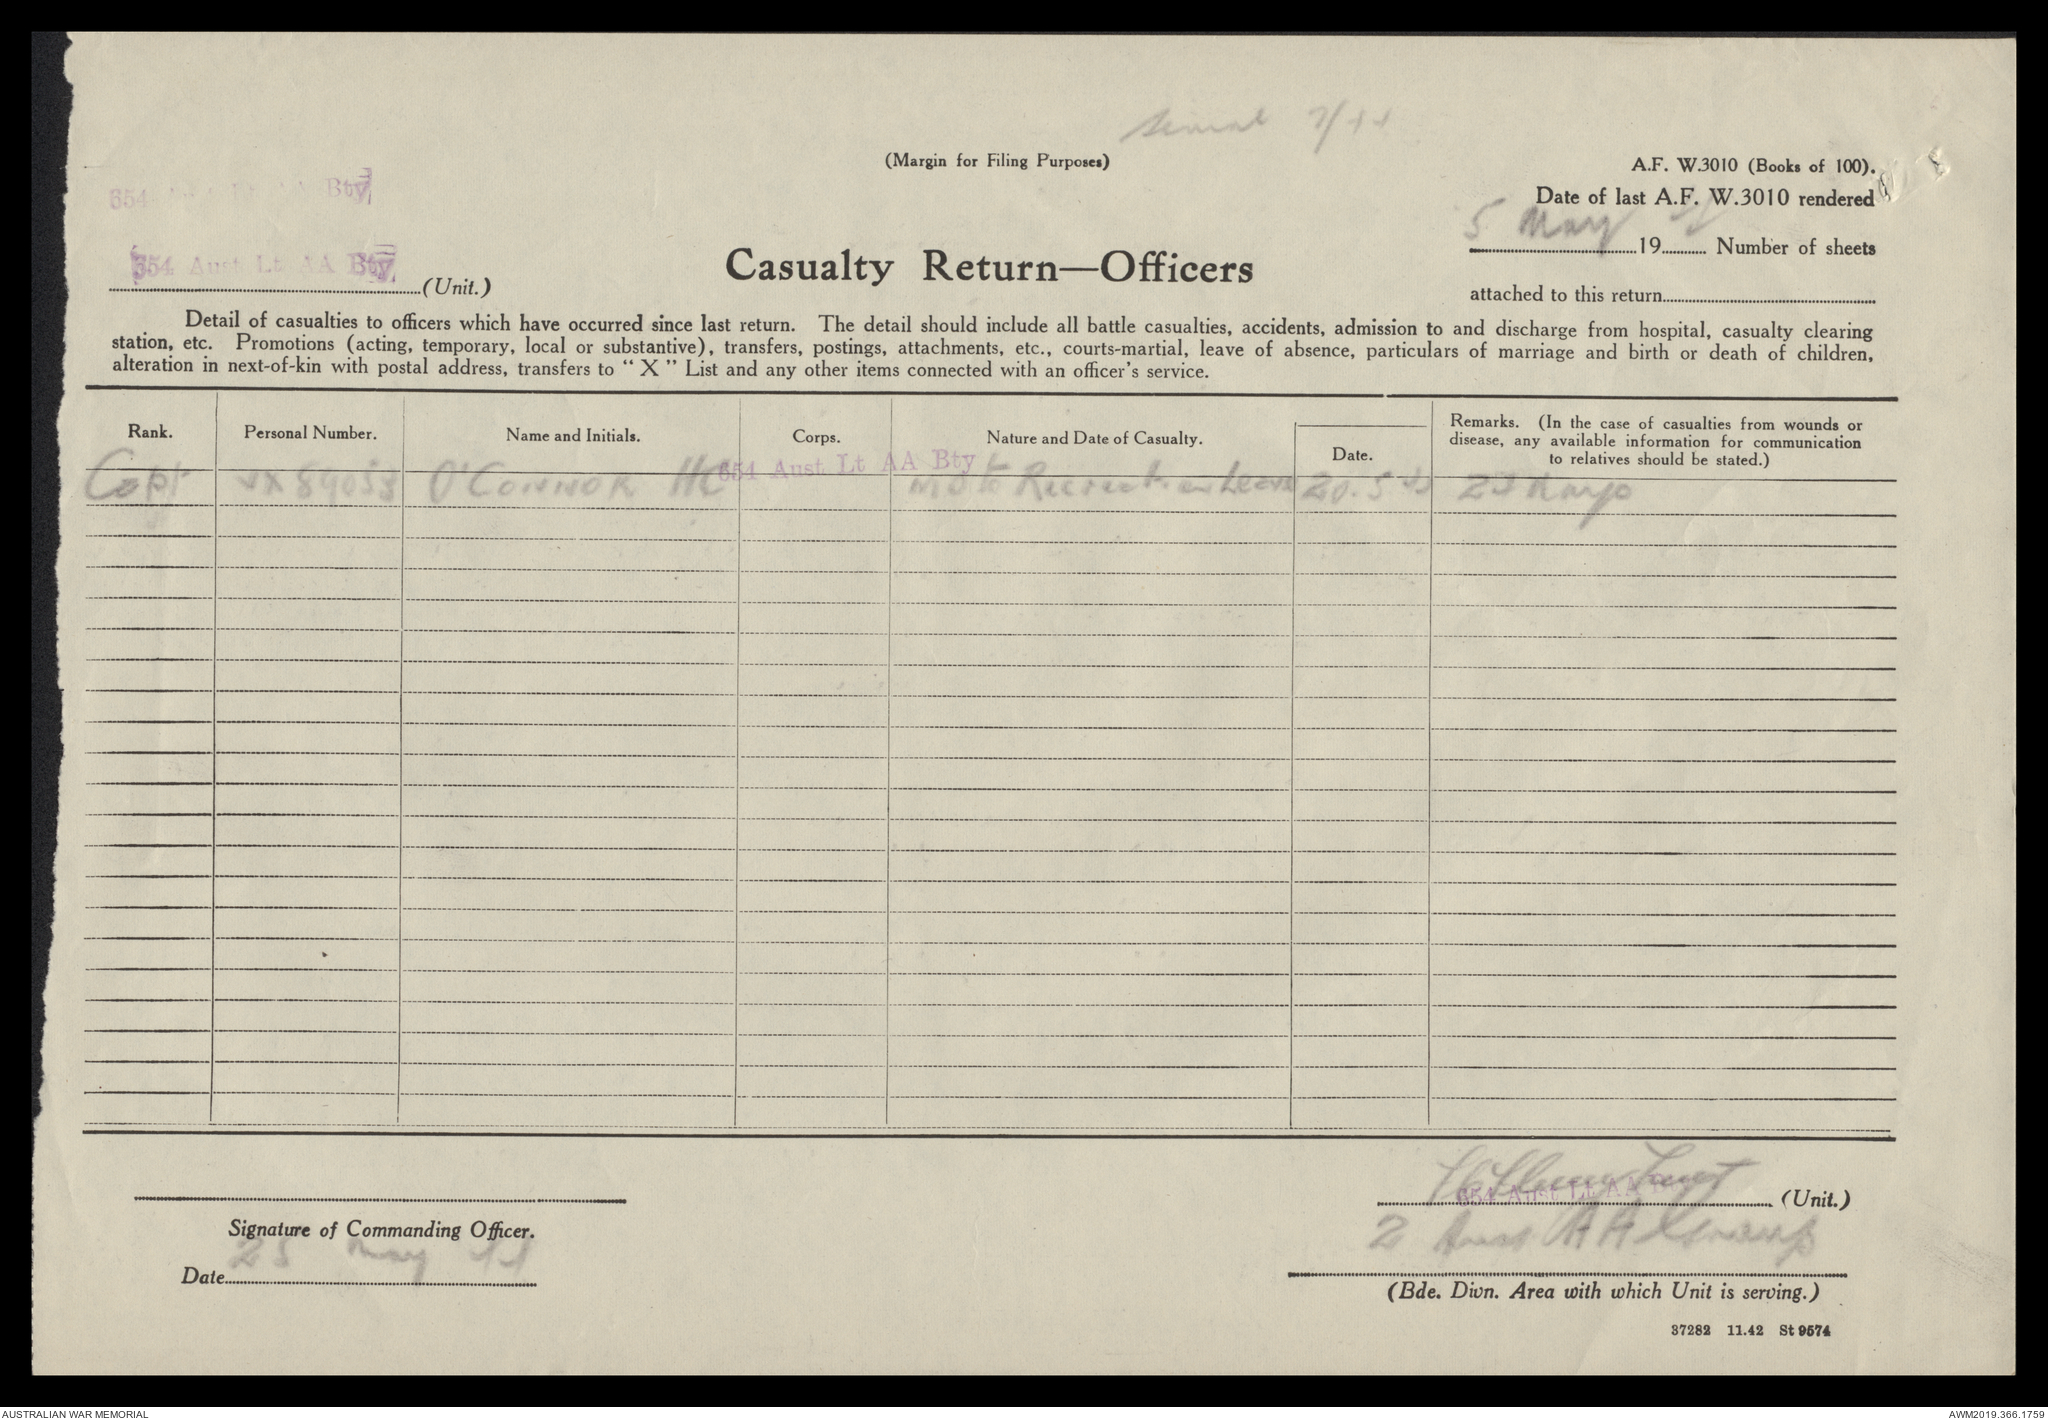 Serial 7/44
(Margin for Filing Purposes)
A.F. W.3010 (Books of 100).
Date of last A.F. W.3010 rendered
5 May 19 Number of sheets
attached to this return
654 Bty
654 Aust Lt AA Bty (Unit.)
Casualty Return—Officers
Detail of casualties to officers which have occurred since last return. The detail should include all battle casualties, accidents, admission to and discharge from hospital, casualty clearing
station, etc. Promotions (acting, temporary, local or substantive), transfers, postings, attachments, etc., courts-martial, leave of absence, particulars of marriage and birth or death of children,
alteration in next-of-kin with postal address, transfers to "X" List and any other items connected with an officer's service.
Rank. Personal Number. Name and Initials. Corps. Nature and Date of Casualty. Date. Remarks. (In the case of casualties from wounds or
disease, any available information for communication
to relatives should be stated.)
654 Aust Lt AA Bty
Capt VX 89053 O'CONNOR HC M O to Recreation Leave 20.5.44 23 days
654 Aust Lt AA (Unit.)
Signature of Commanding Officer.
2 Aust AA Group
Date 25 May 44
(Bde. Divn. Area with which Unit is serving.)
37282 11.42 St 9574
AUSTRALIAN WAR MEMORIAL
AWM2019.366.1759